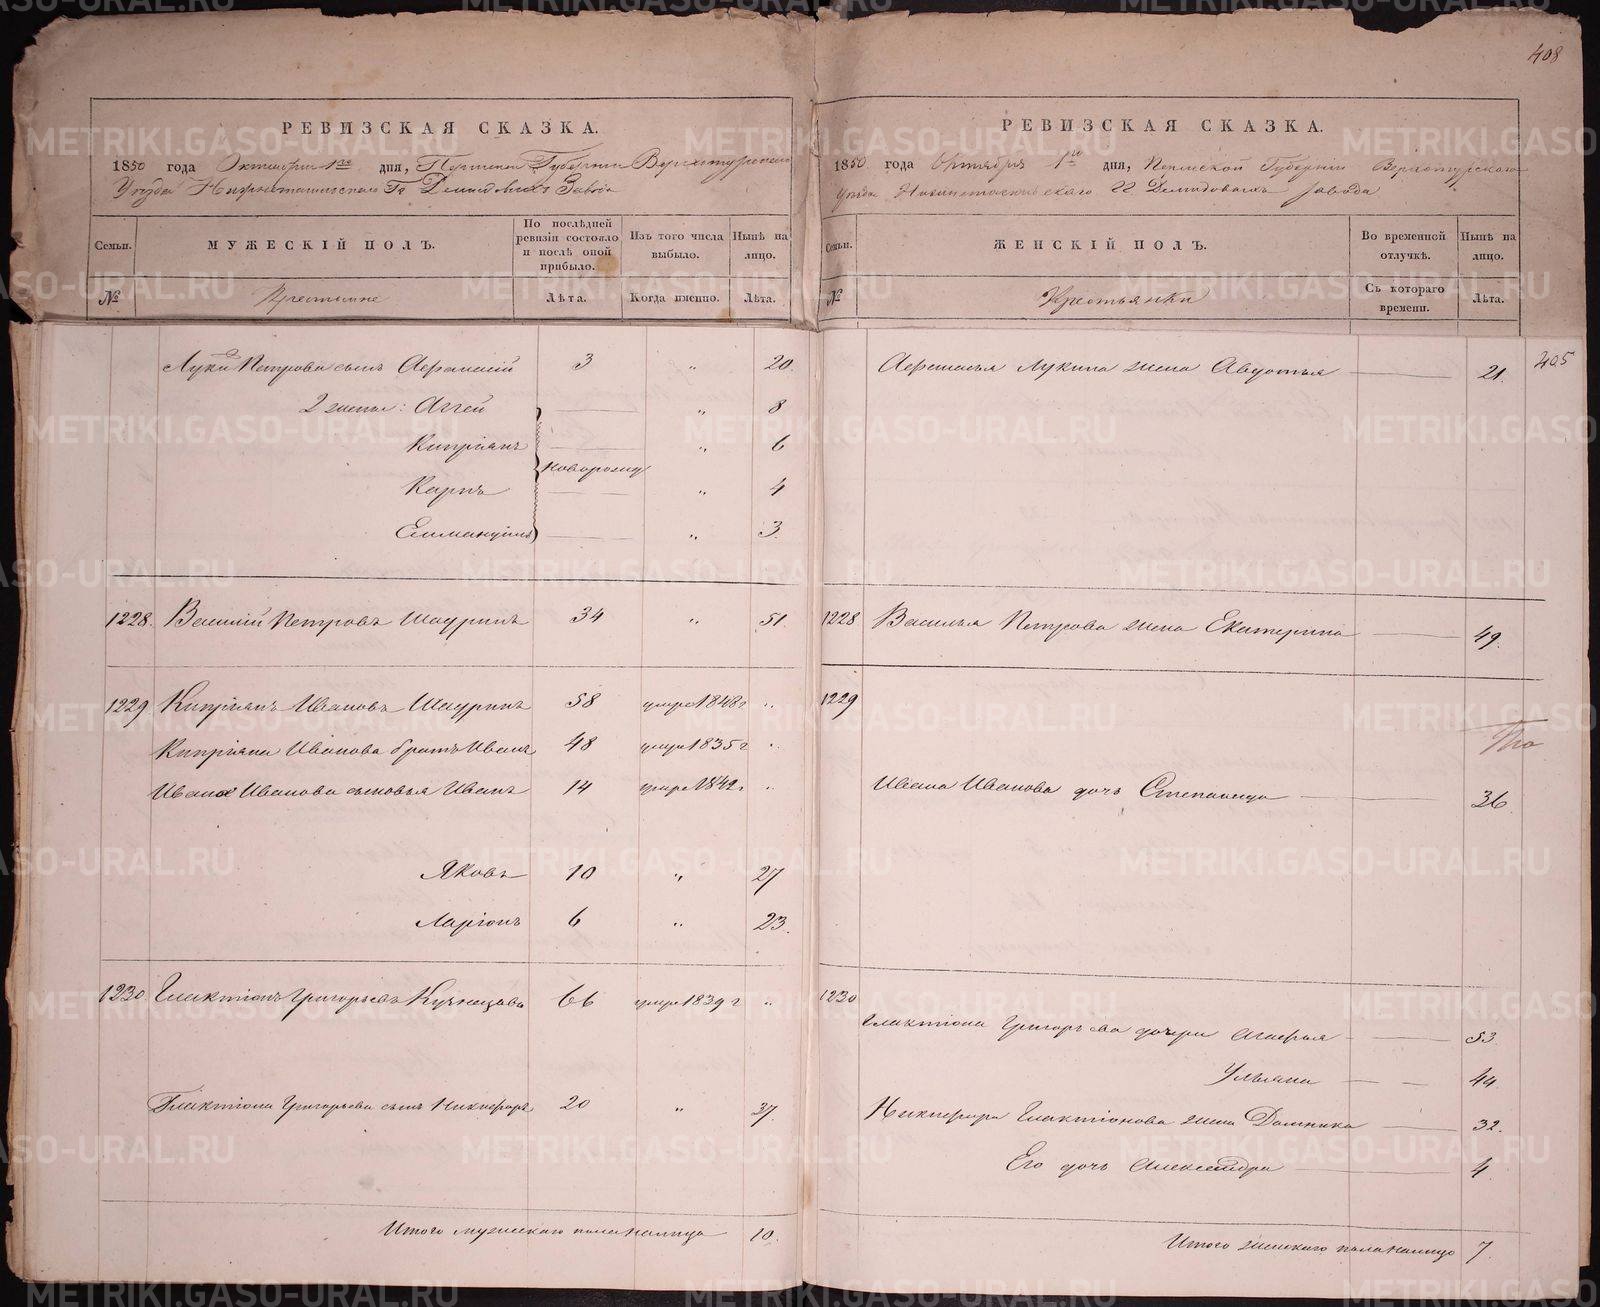 408
РЕВИЗСКАЯ СКАЗКА.
1850 года Октября 1го дня, Пермской Губернии Верхотурскаго
Уѣзда Нижнетагильскаго Гг Демидовыхъ Завода
Семьи.
МУЖЕСКІЙ ПОЛЪ.
По послѣдней ревизіи состояло и послѣ оной прибыло.
Изъ того числа выбыло.
Нынѣ на лицо.
№
Крестьяне
Лѣта.
Когда именно.
Лѣта.
Луки Петрова сынъ Афанасій 3 „ 20.
2 жены: Аггей — „ 8
Кипріянъ — „ 6
новорожд
Карпъ — „ 4
Еммануилъ — „ 3.
1228. Василій Петровъ Шауринъ 34 „ 51.
1229 Кипріянъ Ивановъ Шауринъ 58 умре 1848 г „
Кипріяна Иванова братъ Иванъ 48 умре 1835 г „
Ивана Иванова сыновья Иванъ 14 умре 1842 г „
Яковъ 10 „ 27
Ларіонъ 6 „ 23.
1230. Галактіонъ Григорьевъ Кузнецовъ 66 умре 1839 г „
Галактіона Григорьева сынъ Никифоръ 20 „ 37.
Итого мужескаго пола налицо 10.
РЕВИЗСКАЯ СКАЗКА.
1850 года Октября 1го дня, Пермской Губерніи Верхотурскаго
уѣзда Нижнетагильскаго гг Демидовыхъ завода
Семьи.
ЖЕНСКІЙ ПОЛЪ.
Во временной отлучкѣ.
Нынѣ на лицо.
№
Крестьянки
Съ котораго времени.
Лѣта.
405
Афанасья Лукина жена Авдотья — 21.
1228 Василья Петрова жена Екатерина — 49.
1229
Ивана Иванова дочь Степанида — 36
1230
Галактіона Григорьева дочери Агафья — 53.
Ульяна — 44
Никифора Галактіонова жена Домника — 32.
Его дочь Александра — 4
Итого женскаго пола налицо 7.
METRIKI.GASO-URAL.RU